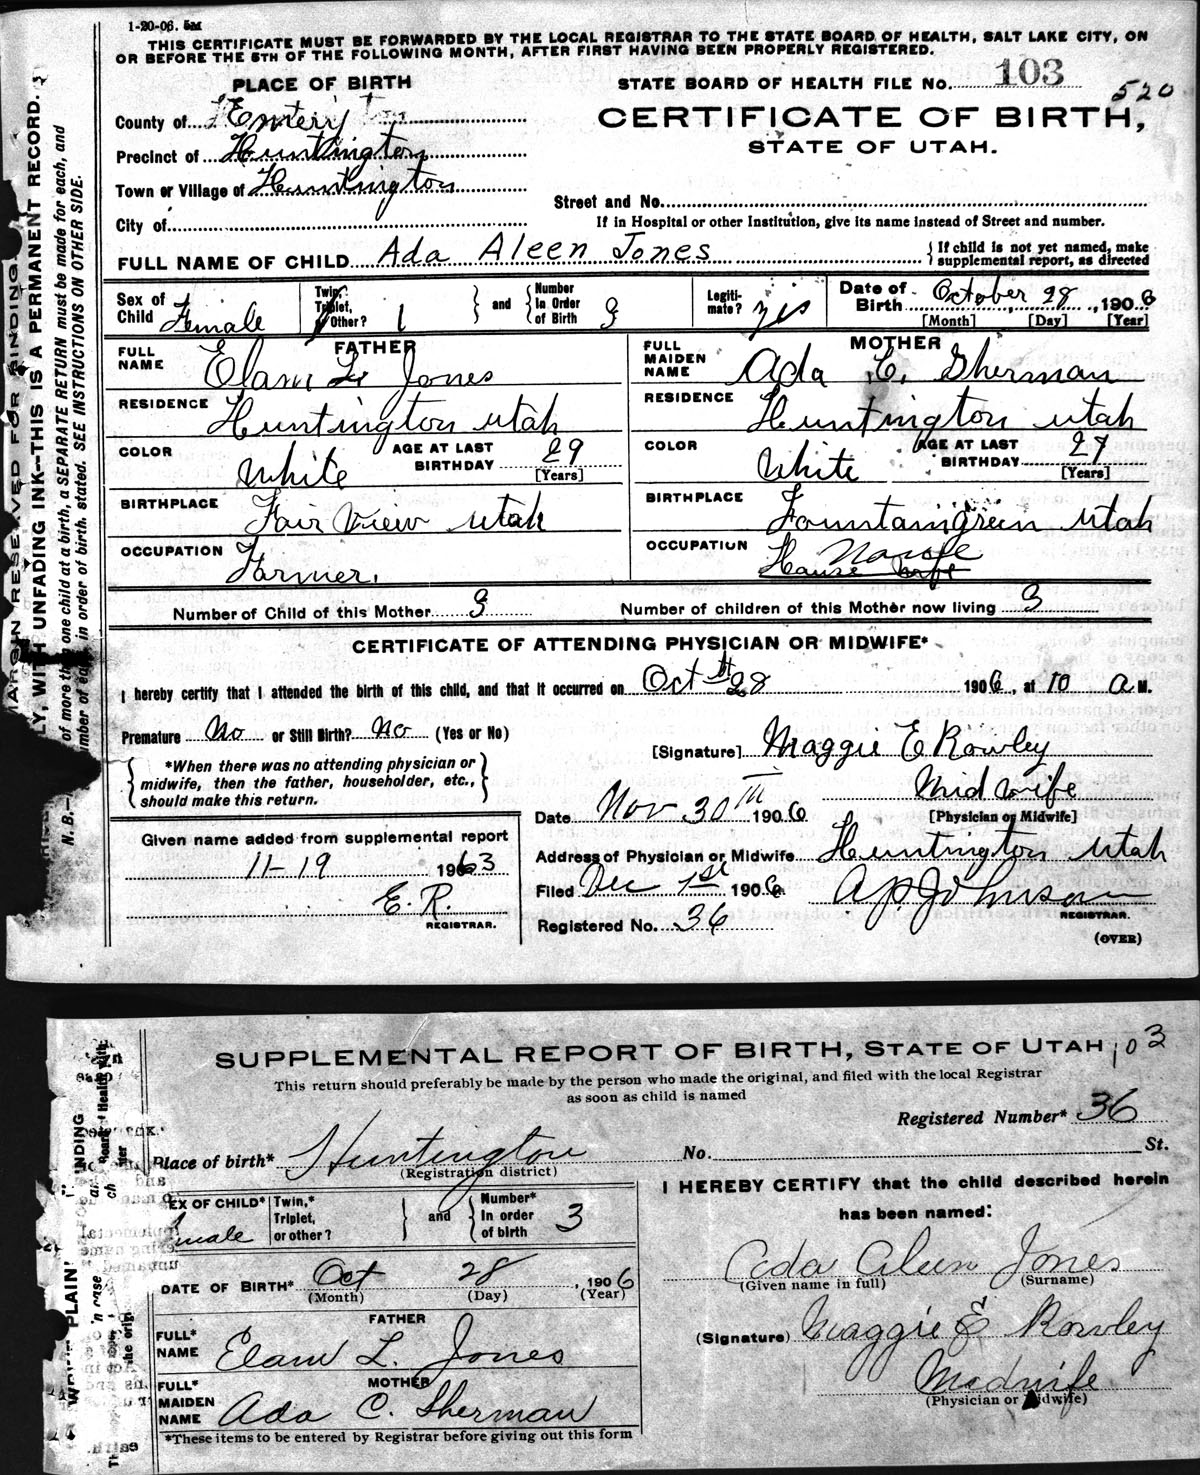 1-20-06. 5M
THIS CERTIFICATE MUST BE FORWARDED BY THE LOCAL REGISTRAR TO THE STATE BOARD OF HEALTH, SALT LAKE CITY, ON
OR BEFORE THE 5TH OF THE FOLLOWING MONTH, AFTER FIRST HAVING BEEN PROPERLY REGISTERED.
PLACE OF BIRTH
STATE BOARD OF HEALTH FILE No. 103
520
County of Emery
CERTIFICATE OF BIRTH,
Precinct of Huntington
STATE OF UTAH.
Town or Village of Huntington
Street and No.
City of
If in Hospital or other Institution, give its name instead of Street and number.
FULL NAME OF CHILD Ada Aleen Jones
If child is not yet named, make
supplemental report, as directed
Sex of Child Female
Twin, Triplet, or Other? 1 and Number in Order of Birth 3
Legitimate? yes
Date of Birth October 28, 1906
[Month] [Day] [Year]
FATHER
FULL NAME Elam L. Jones
RESIDENCE Huntington Utah
COLOR White AGE AT LAST BIRTHDAY 29 [Years]
BIRTHPLACE Fair View Utah
OCCUPATION Farmer.
MOTHER
FULL MAIDEN NAME Ada C. Sherman
RESIDENCE Huntington Utah
COLOR White AGE AT LAST BIRTHDAY 27 [Years]
BIRTHPLACE Fountaingreen Utah
OCCUPATION House wife
Number of Child of this Mother 3 Number of children of this Mother now living 3
CERTIFICATE OF ATTENDING PHYSICIAN OR MIDWIFE*
I hereby certify that I attended the birth of this child, and that it occurred on Oct th 28 1906, at 10 A M.
Premature No or Still Birth? No (Yes or No)
[Signature] Maggie E Rowley
*When there was no attending physician or
midwife, then the father, householder, etc.,
should make this return.
Mid wife
[Physician or Midwife]
Date Nov 30TH 1906
Given name added from supplemental report
11-19 1963
E. R.
REGISTRAR.
Address of Physician or Midwife Huntington Utah
Filed Dec 1st 1906 A P Johnson
REGISTRAR.
Registered No. 36
(OVER)
MARGIN RESERVED FOR BINDING.
LY, WITH UNFADING INK--THIS IS A PERMANENT RECORD.
N. B.-
of more than one child at a birth, a SEPARATE RETURN must be made for each, and
number of each, in order of birth, stated. SEE INSTRUCTIONS ON OTHER SIDE.
SUPPLEMENTAL REPORT OF BIRTH, STATE OF UTAH 103
This return should preferably be made by the person who made the original, and filed with the local Registrar
as soon as child is named
Registered Number* 36
Place of birth* Huntington No. St.
(Registration district)
SEX OF CHILD* Female
Twin,* Triplet, or other? and Number* in order of birth 3
I HEREBY CERTIFY that the child described herein
has been named:
DATE OF BIRTH* Oct 28, 1906
(Month) (Day) (Year)
Ada Aleen Jones
(Given name in full) (Surname)
FATHER
FULL* NAME Elam L. Jones
(Signature) Maggie E Rowley
MOTHER
FULL* MAIDEN NAME Ada C. Sherman
Midwife
(Physician or Midwife)
*These items to be entered by Registrar before giving out this form